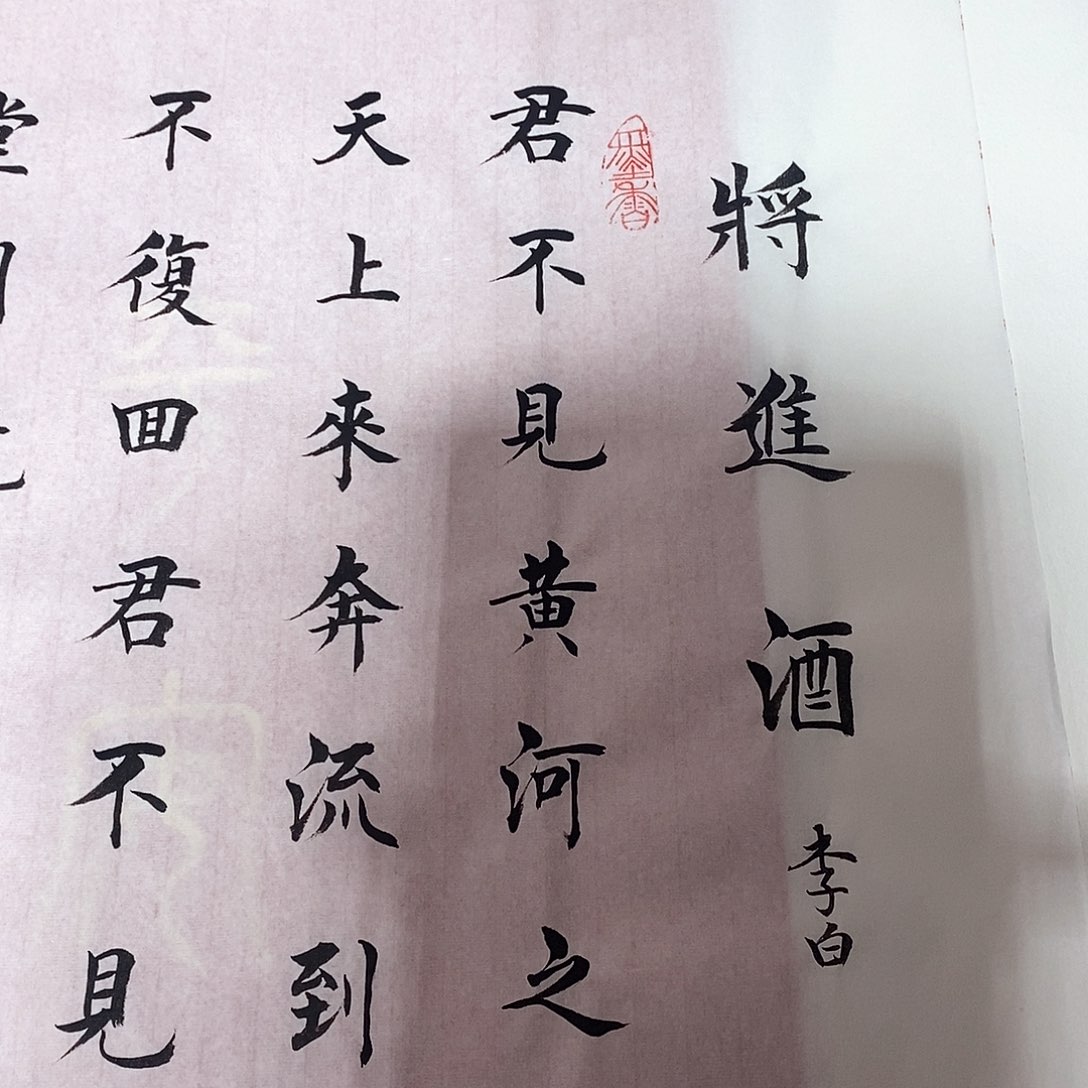 將進酒
李白
墨香
君不見黄河之
天上來奔流到
不復囬君不見